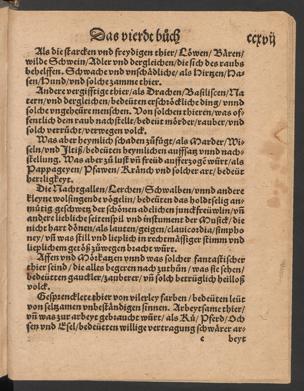 Das vierdt bůch
ccxvij
Als die starcken vnd freydigen thier / Löwen / Bären /
wilde Schwein / Adler vnd dergleichen / die sich des raubs
behelffen. Schwache vnd vnschädliche / als Hirtzen / Ha-
sen / Hund / vnd solche zamme thier.
Andere vergifftige thier / als Drachen / Basiliscen / Na
tern / vnd dergleichen / bedeüten erschröckliche ding / vnnd
solche vngeheüre menschen. Von solchen thieren / was of-
fentlich dem raub nachstelle / bedeüt mörder / rauber / vnd
solch verrůcht / verwegen volck.
Was aber heymlich schaden zůfügt / als Marder / Wi-
seln / vnd Iltiß / bedeüten heymlich auffsatz vnnd nach-
stellung. Was aber zů lust vn̄ freüd aufferzogē würt / als
Pappageyen / Pfawen / Kränch vnd solcher art / bedeüt
herrligkeyt.
Die Nachtgallen / Lerchen / Schwalben / vnnd andere
kleyne wolsingende vögelin / bedeüten das holdtselig an-
mütig geschwetz der schönen adelichen junckfreüwlin / vn̄
andere liebliche seitenspil vnd instrument der Music / die
nicht hart dönen / als lauten / geigen / clauicordia / simpho
ney / vn̄ was still vnd lieplich in rechtmässiger stimm vnd
lieplichem getöß zůwegen bracht würt.
Affen vnd Mörkatzen vnnd was solcher fantastischer
thier seind / die alles begeren nach zuthůn / was sie sehen /
bedeütten gauckler / zauberer / vn̄ solch betrüglich heilloß
volck.
Gesprencklete thier von vilerley farben / bedeüten leüt
von seltzamen vnbeständigen sinnen. Arbeytsame thier /
vn̄ was zur arbeyt gebraucht würt / als Ků / Pferd / Och
sen vnd Esel / bedeütten willige vertragung schwärer ar-
e
beyt